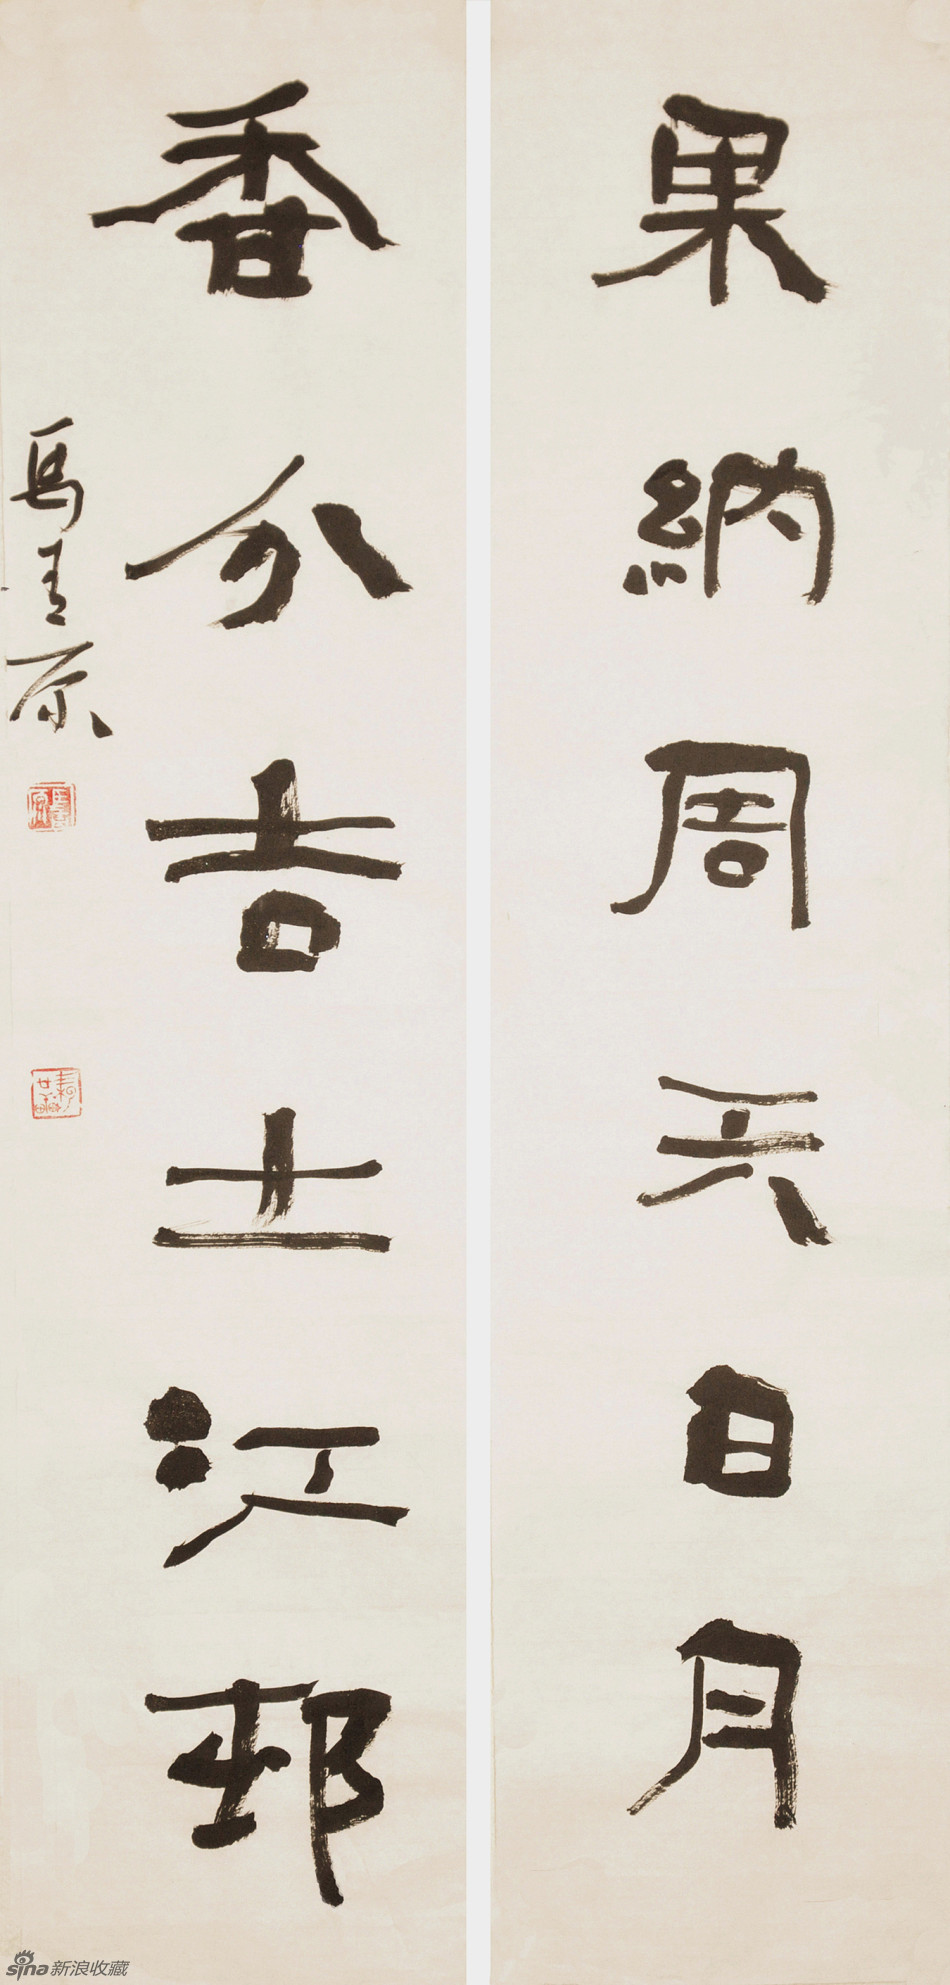 果納周天日月
香分吉土江邨
馬青原
sina新浪收藏